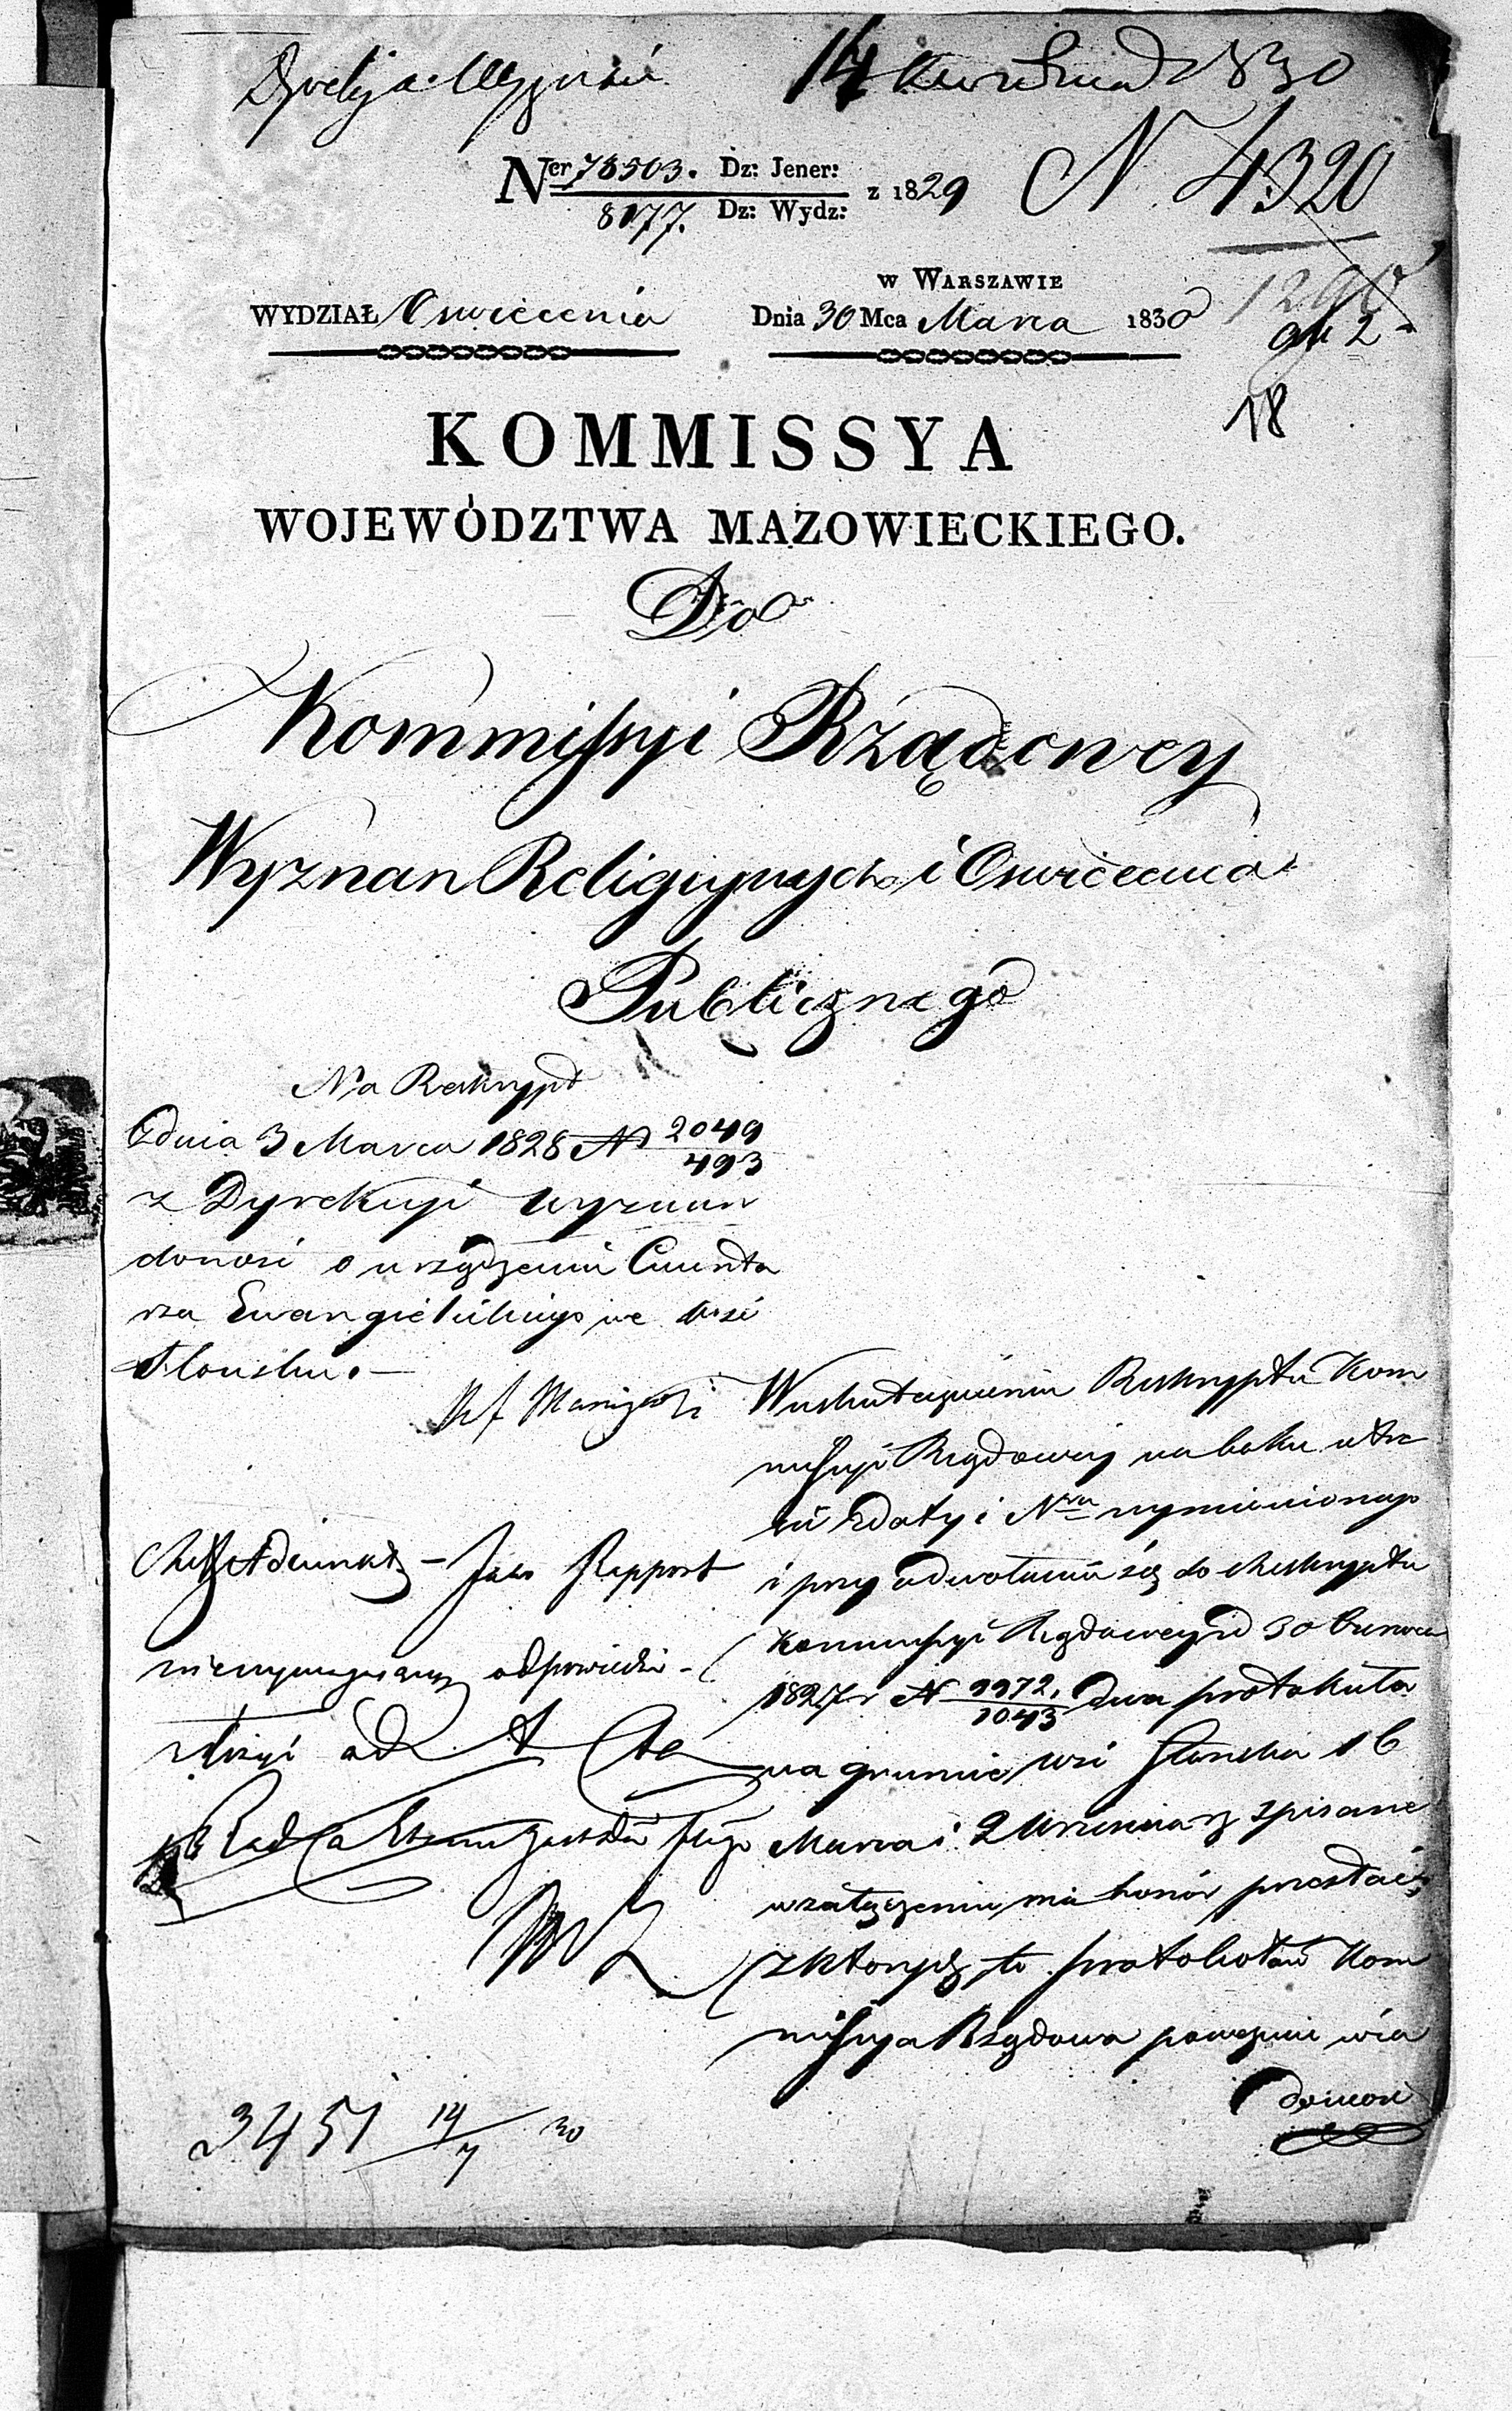 Dyrekcja Wyznań 14 Kwietnia 1830
Ner 78503. Dz: Jener: z 1829 N 4320
8177. Dz: Wydz:
1290
w Warszawie
WYDZIAŁ Oswiecenia Dnia 30 Mca Marca 1830
18
KOMMISSYA
WOJEWÓDZTWA MAZOWIECKIEGO.
Do
Kommissyi Rządowey
Wyznan Religiynych i Oswiecenia
Publicznego
Na Reskrypt
z dnia 3 Marca 1828 N 2049
493
z Dyrekcyi wyznan
donosi o urządzeniu Cmenta
rza Ewangielickiego we wsi
Słońsku.
W uskutecznieniu Reskryptu Kom
missyi Rządowey na boku w tre
ści z daty i Nra wymienionego
i przy odwołaniu się do Reskryptu
Kommissyi Rządowey d 30 Czerwca
1827 r N 9972. dwa protokuła
1043
na gruncie wsi Słońska 16
Marca i 2 Września r z spisane
w załączeniu ma honor przesłać,
z których to protokołów Kom
missya Rządowa poweźmie wia
domość
Adjunkt – Jako Rapport
niewymagający odpowiedzi –
złożyć ad Acta
3451 14/4 30